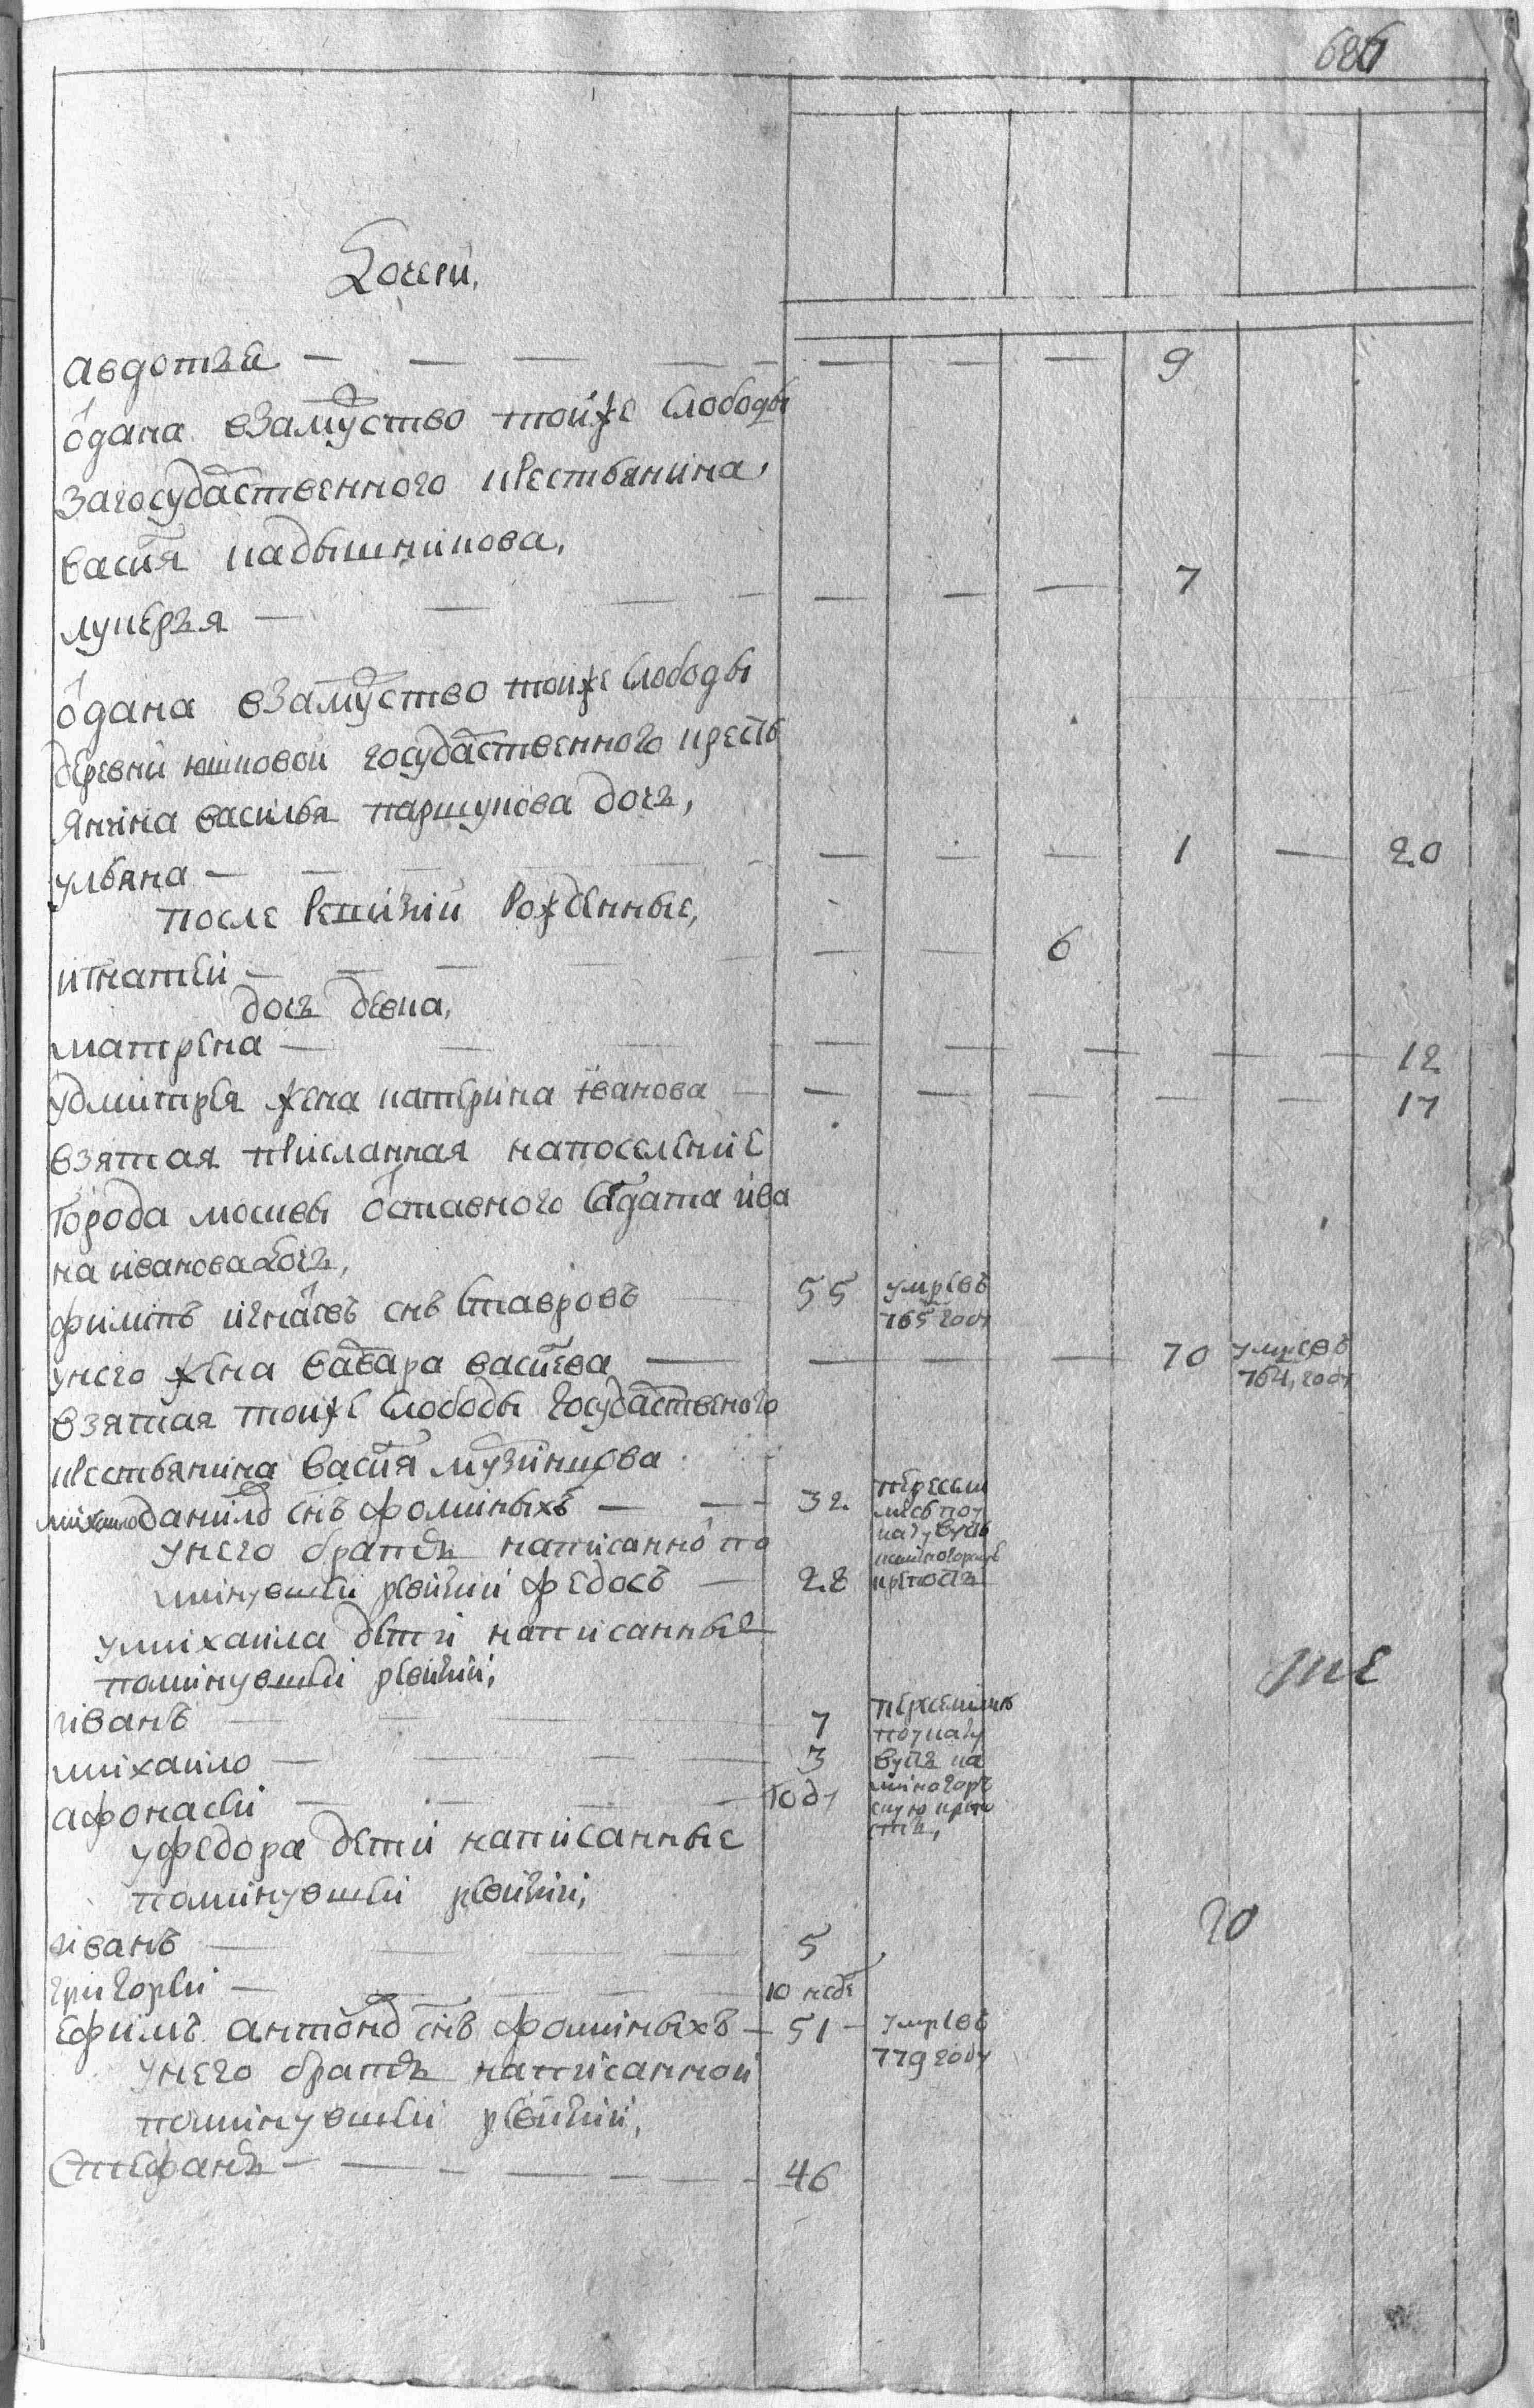 686
Дочери,
авдотья — — — — — — — 9
одана взамуство тойже слободы
загосударственного крестьянина,
васия кадышникова,
лукерья — — — — — — — 7
одана взамуство тоиже слободы
деревни юшковой государственного кресть
янина василья паршукова дочь,
ульяна — — — — — — 1 — 20
после ревизии рожденные,
игнатей — — — — — — 6
дочь девка,
матрена — — — — — — — — 12
удмитрея жена катерина иванова — — — — — — 17
взятая присланная напоселение
города москвы отставного салдата ива
на иванова дочь,
филипъ игнатевъ снъ ставровъ — 55 умре въ
765 году
унего жена варвара васиева — — — — 70 умре въ
764, году
взятая тоиже слободы государственого
крестьянина васия
михаило данилов снъ фоминыхъ — — 32
унего братья написанно по
минувшеи ревизии федосъ — 28
умихаила дети написанные
поминувшей ревизии,
иванъ — 7
михаило — 3
афонасеи — году
уфедора дети написанные
поминувшей ревизии,
иванъ — 5
григореи — 10 неде
ефимъ антонов снъ фоминыхъ — 51 — умре въ
779 году
унего братья написанной
поминувшей ревизии,
стефанъ — — — — 46